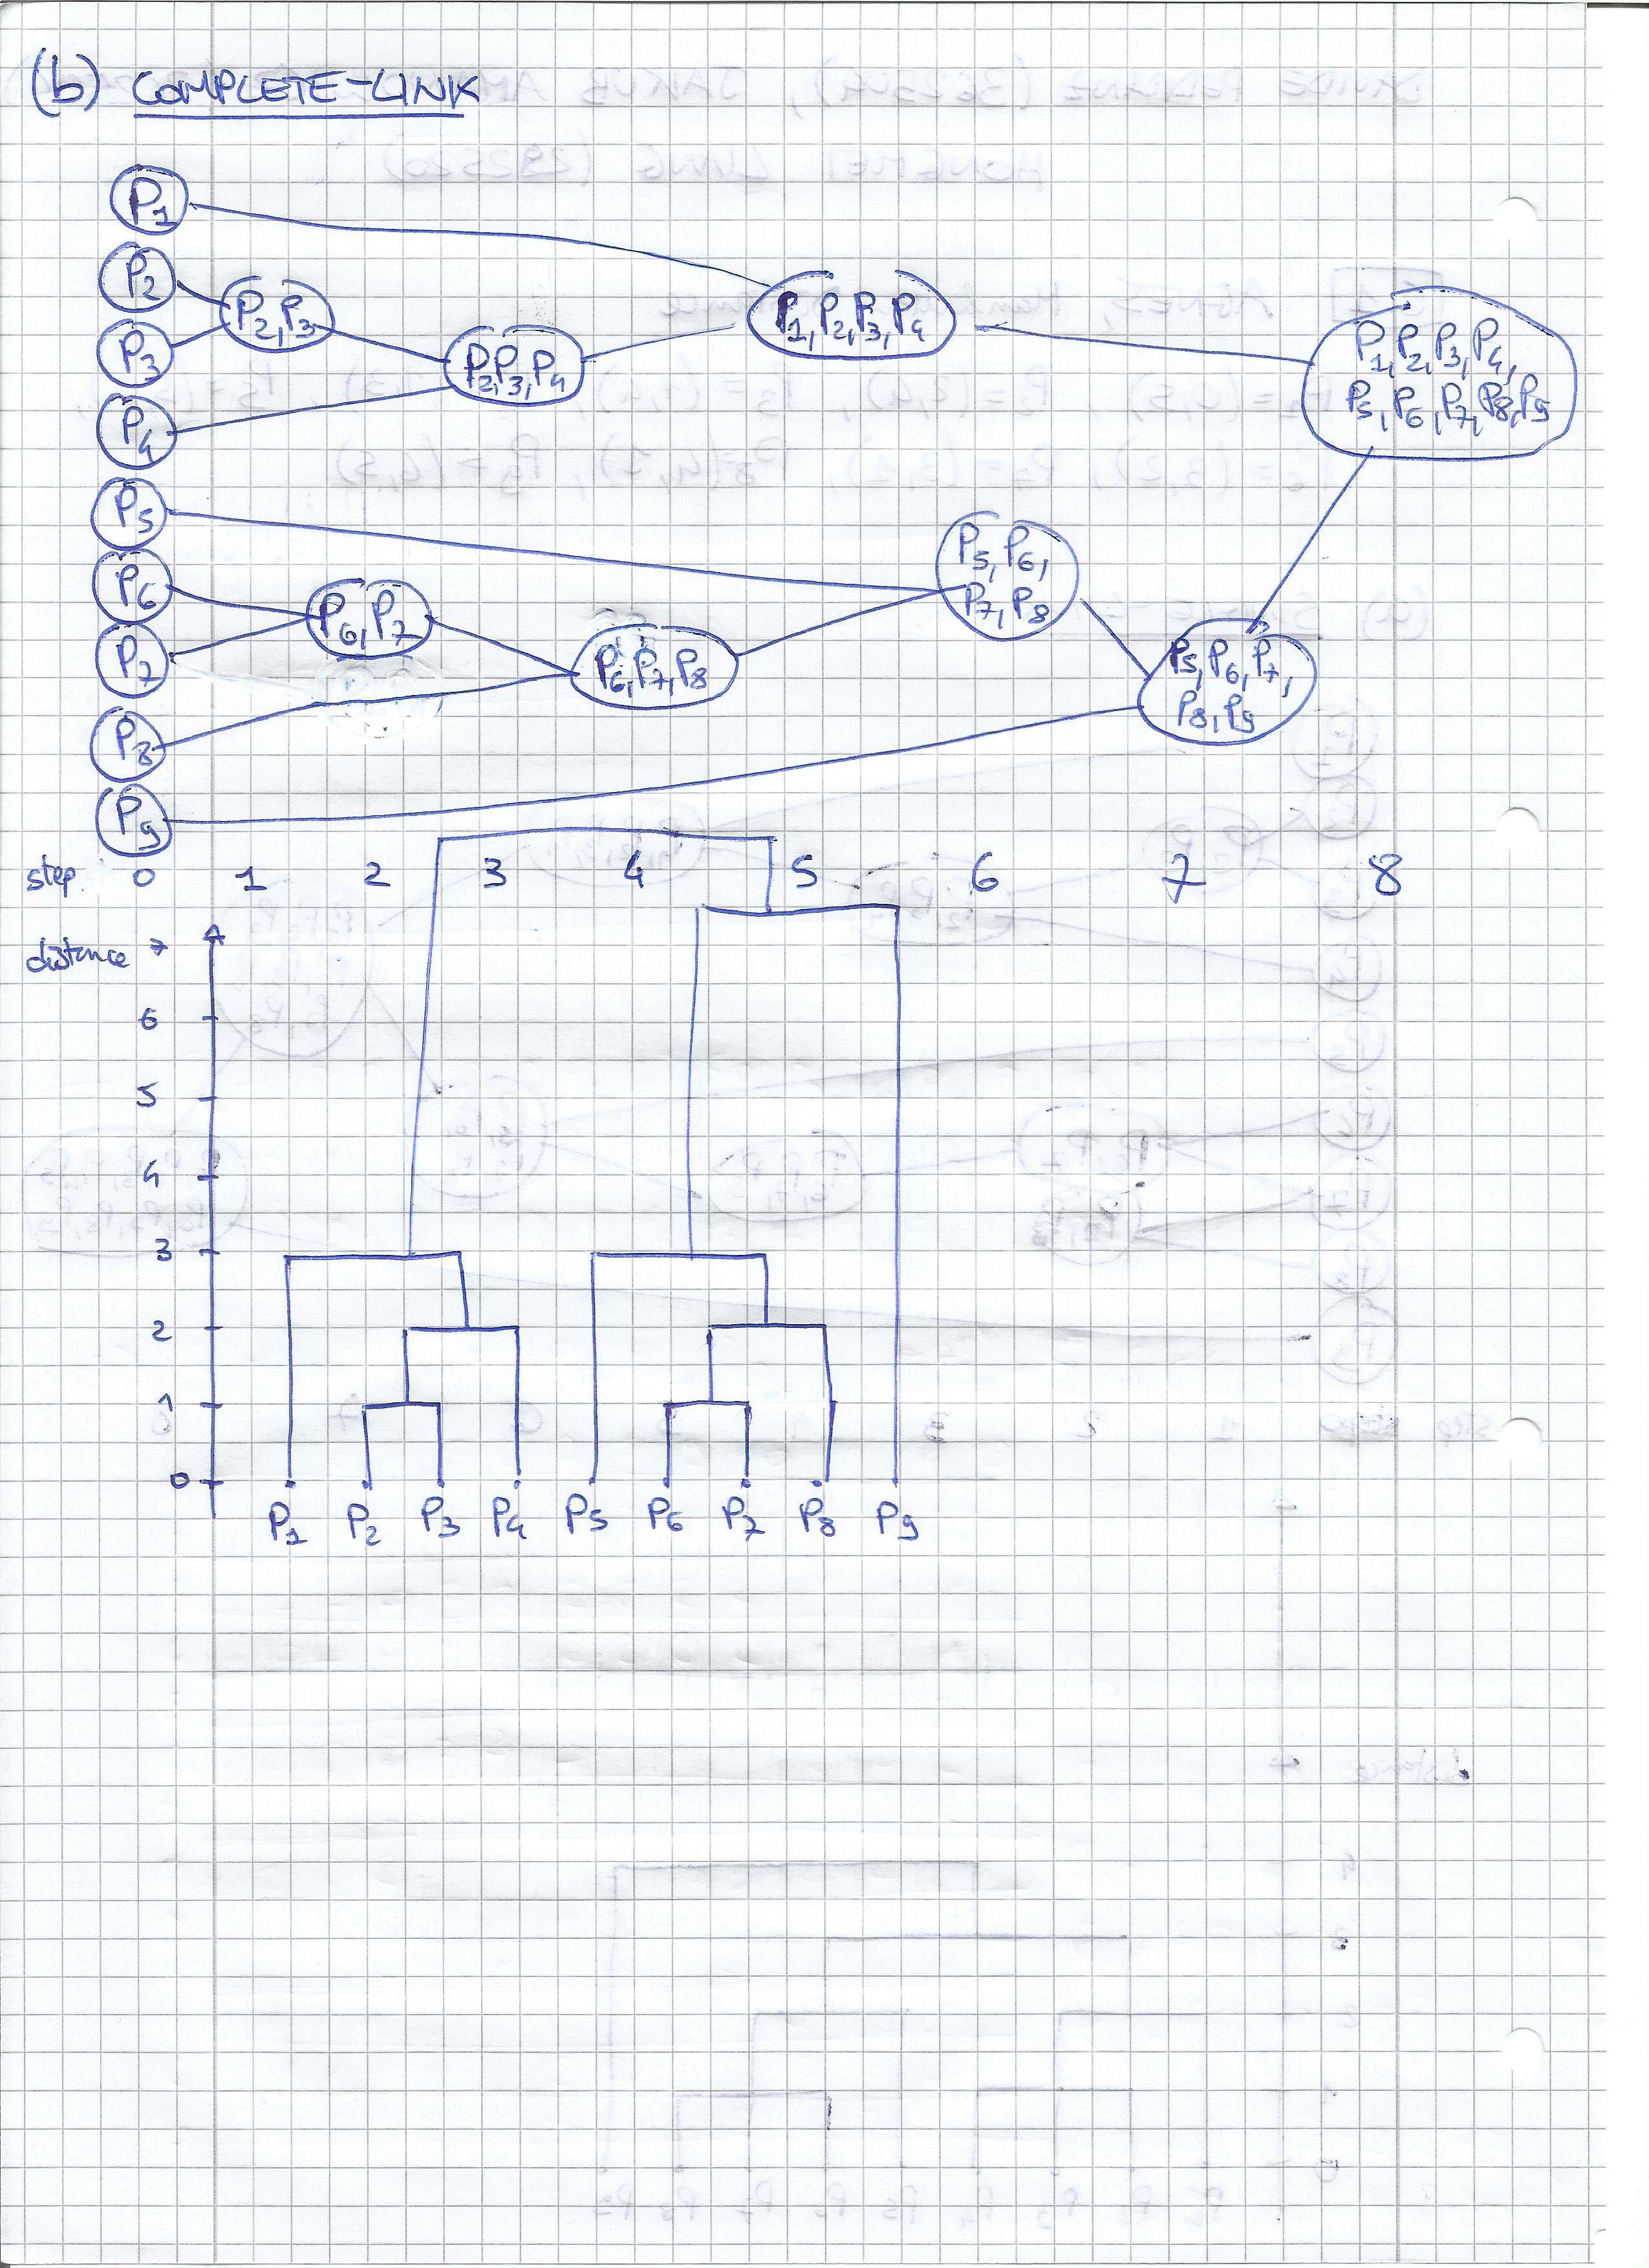 (b) COMPLETE-LINK
P1
P2
P2, P3
P1, P2, P3, P4
P3
P2, P3, P4
P1, P2, P3, P4,
P5, P6, P7, P8, P9
P4
P5
P5, P6,
P7, P8
P6
P6, P7
P7
P6, P7, P8
P5, P6, P7,
P8, P9
P8
P9
step 0 1 2 3 4 5 6 7 8
distance 7
6
5
4
3
2
1
0
P1 P2 P3 P4 P5 P6 P7 P8 P9